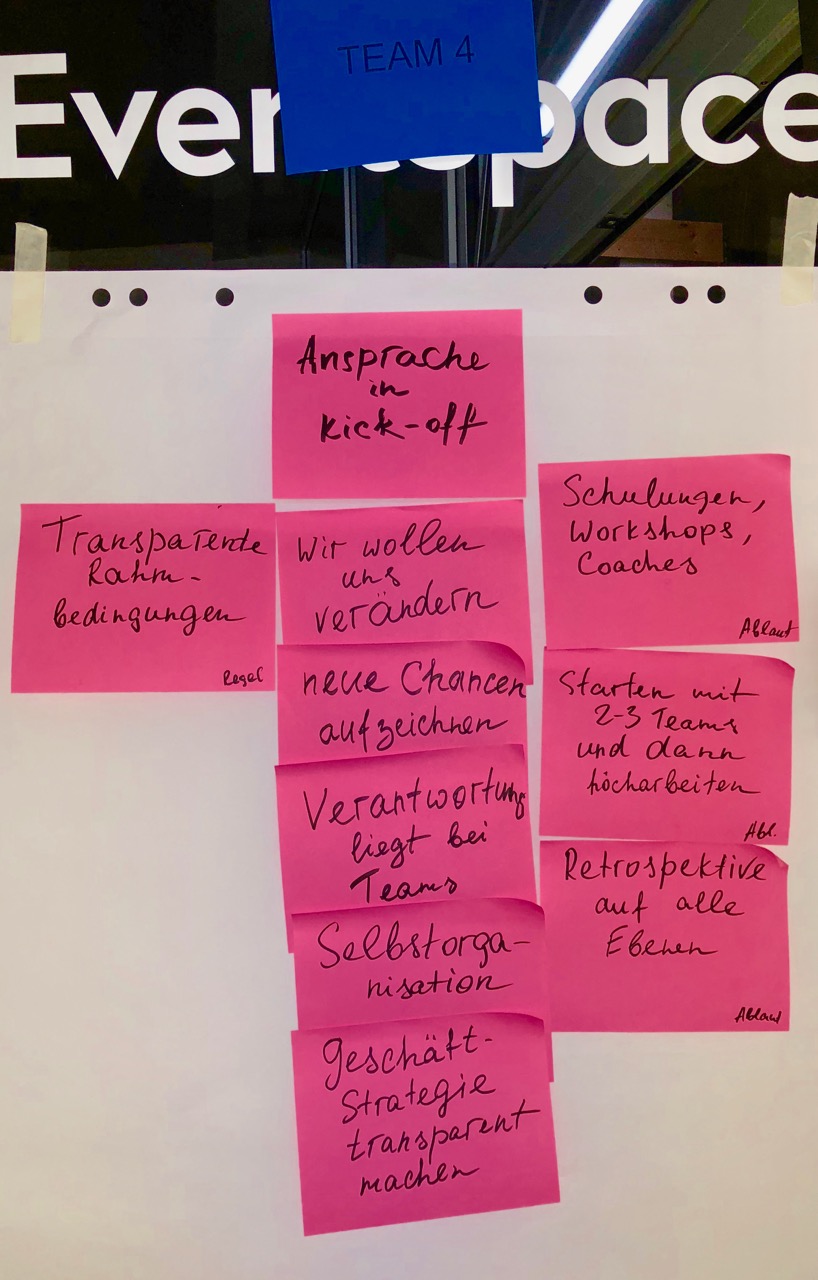 TEAM 4
Ansprache
in
Kick-off
Transparente
Rahm-
bedingungen
Regel
Wir wollen
uns
verändern
neue Chancen
aufzeichnen
Verantwortung
liegt bei
Teams
Selbstorga-
nisation
Geschäft-
Strategie
transparent
machen
Schulungen,
Workshops,
Coaches
Ablauf
Starten mit
2-3 Teams
und dann
hocharbeiten
Abl.
Retrospektive
auf alle
Ebenen
Ablauf